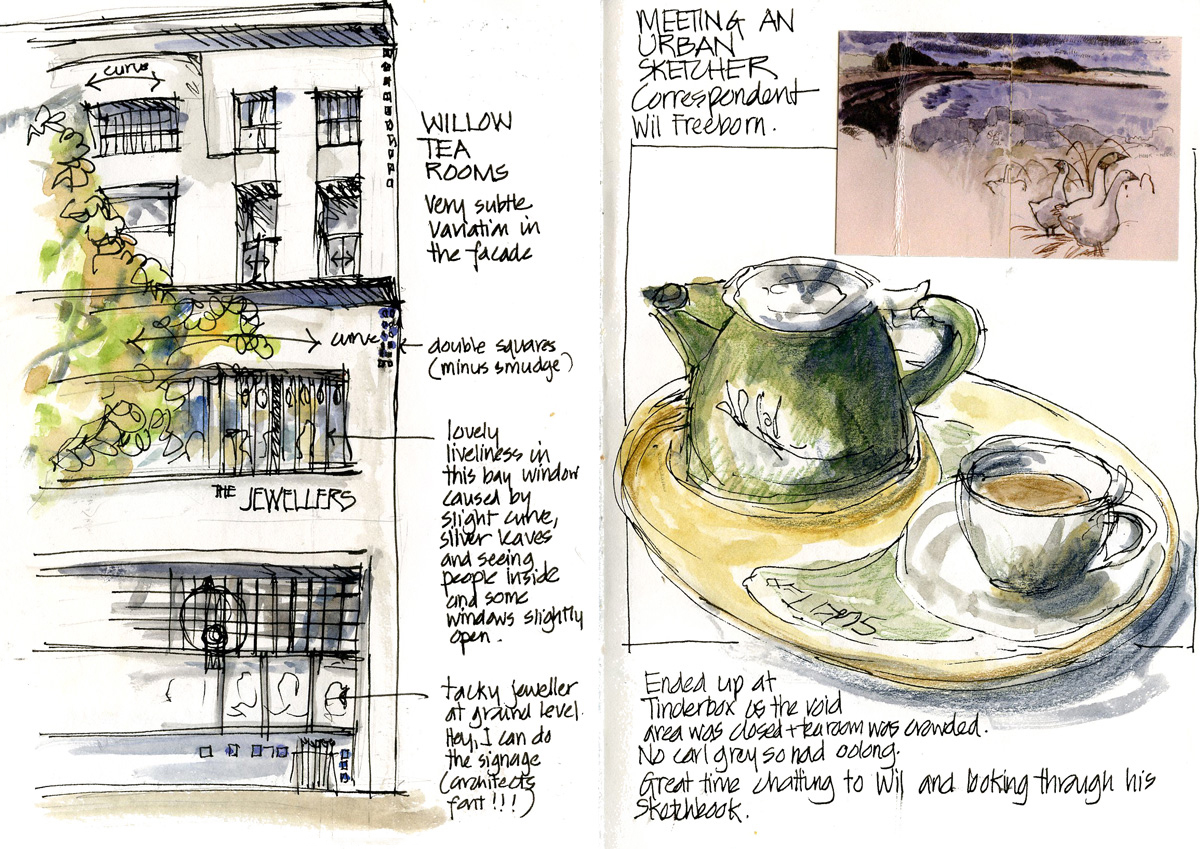 curve
WILLOW
TEA
ROOMS
Very subtle
variation in
the facade
curve
double squares
(minus smudge)
lovely
liveliness in
this bay window
caused by
slight curve,
silver leaves
and seeing
people inside
and some
windows slightly
open.
THE JEWELLERS
tacky jeweller
at ground level.
Hey, I can do
the signage
(architects
font!!!)
MEETING AN
URBAN
SKETCHER
Correspondent
Wil Freeborn.
Ended up at
Tinderbox as the void
area was closed + tearoom was crowded.
No earl grey so had oolong.
Great time chatting to Wil and looking through his
sketchbook.